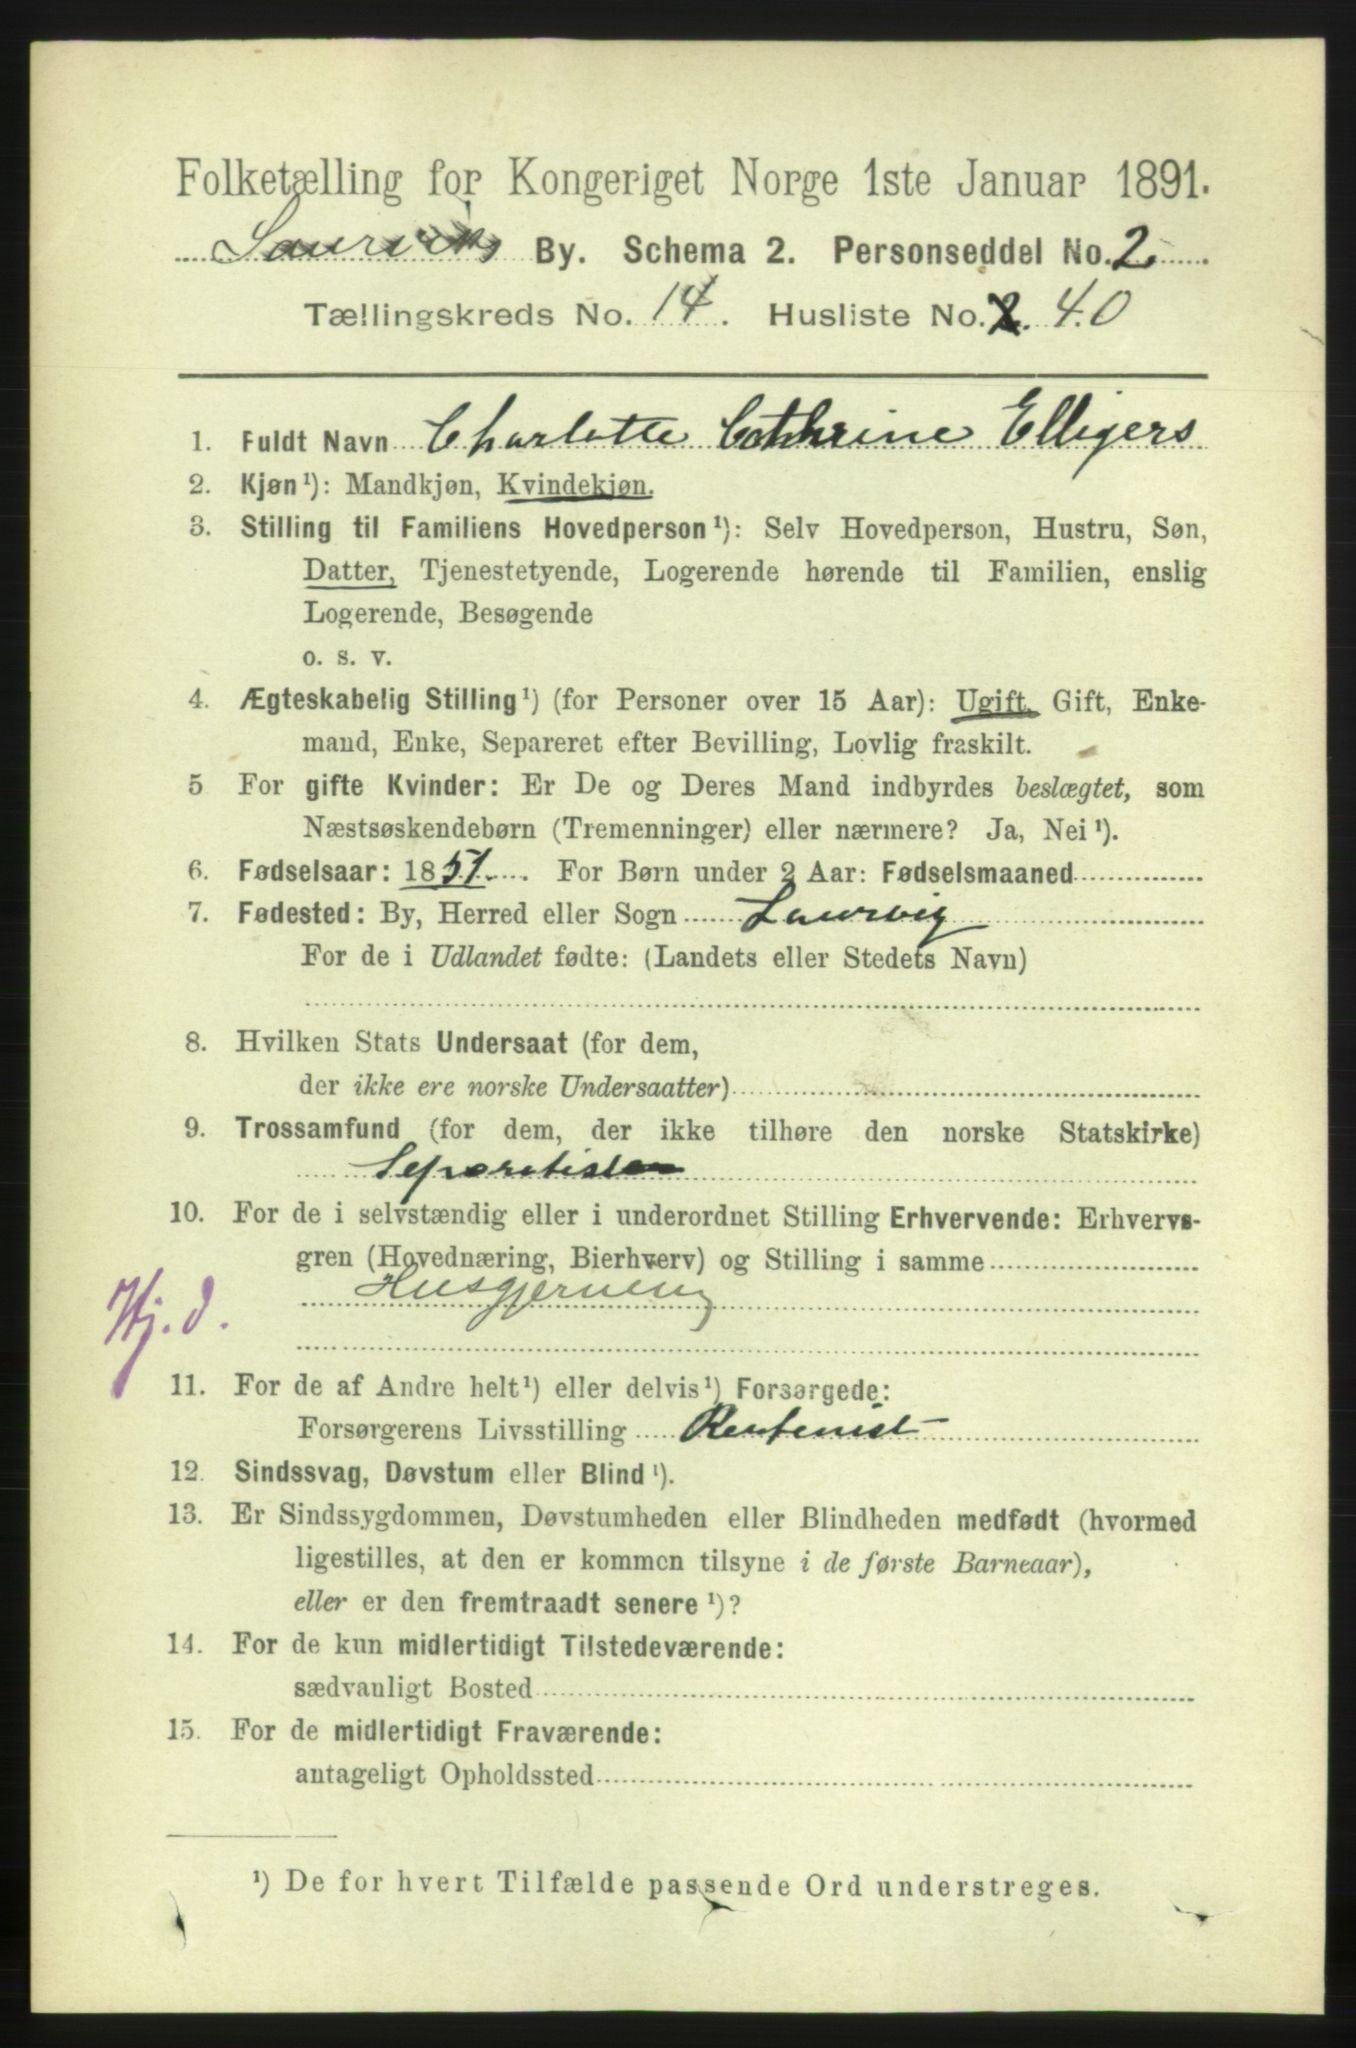 Folketælling for Kongeriget Norge 1ste Januar 1891.
Laurviks By. Schema 2. Personseddel No. 2
Tællingskreds No. 14. Husliste No. 2. 40
1. Fuldt Navn Charlotte Cathrine Elligers
2. Kjøn¹): Mandkjøn, Kvindekjøn.
3. Stilling til Familiens Hovedperson¹): Selv Hovedperson, Hustru, Søn,
Datter, Tjenestetyende, Logerende hørende til Familien, enslig
Logerende, Besøgende
o. s. v.
4. Ægteskabelig Stilling¹) (for Personer over 15 Aar): Ugift, Gift, Enke-
mand, Enke, Separeret efter Bevilling, Lovlig fraskilt.
5 For gifte Kvinder: Er De og Deres Mand indbyrdes beslægtet, som
Næstsøskendebørn (Tremenninger) eller nærmere? Ja, Nei¹).
6. Fødselsaar: 1851. For Børn under 2 Aar: Fødselsmaaned
7. Fødested: By, Herred eller Sogn Laurvig
For de i Udlandet fødte: (Landets eller Stedets Navn)
8. Hvilken Stats Undersaat (for dem,
der ikke ere norske Undersaatter)
9. Trossamfund (for dem, der ikke tilhøre den norske Statskirke)
Separatisten
10. For de i selvstændig eller i underordnet Stilling Erhvervende: Erhvervs-
gren (Hovednæring, Bierhverv) og Stilling i samme
Husgjerning
Hj. d.
11. For de af Andre helt¹) eller delvis¹) Forsørgede:
Forsørgerens Livsstilling Rentenist
12. Sindssvag, Døvstum eller Blind¹).
13. Er Sindssygdommen, Døvstumheden eller Blindheden medfødt (hvormed
ligestilles, at den er kommen tilsyne i de første Barneaar),
eller er den fremtraadt senere¹)?
14. For de kun midlertidigt Tilstedeværende:
sædvanligt Bosted
15. For de midlertidigt Fraværende:
antageligt Opholdssted
¹) De for hvert Tilfælde passende Ord understreges.